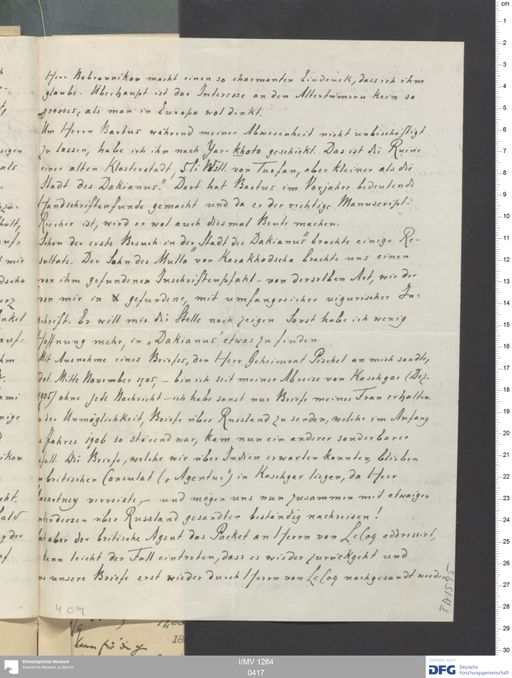 Herr Bobrovnikov macht einen so charmanten Eindruck, dass ich ihm
glaube. Überhaupt ist das Interesse an den Altertümern kein so
grosses, als man in Europa wol denkt.
Um Herrn Bartus während meiner Abwesenheit nicht unbeschäftigt
zu lassen, habe ich ihn nach Yar-khoto geschickt. Das ist die Ruine
einer alten Klosterstadt, 5 li Westl. von Turfan, aber kleiner als die
Stadt des Dakianus. Dort hat Bartus im Vorjahre bedeutende
Handschriftenfunde gemacht und da er der richtige Manuscript-
Riecher ist, wird er wol auch diesmal Beute machen.
Schon der erste Besuch in der "Stadt des Dakianus" brachte einige Re-
sultate. Der Sohn des Mulla von Karakhodscha brachte uns einen
von ihm gefundenen Inschriftenpfahl - von derselben Art, wie der
von mir in X gefundene, mit umfangreicher uigurischer In-
schrift. Er will mir die Stelle noch zeigen. Sonst habe ich wenig
Hoffnung mehr, in "Dakianus" etwas zu finden.
Mit Ausnahme eines Briefes, den Herr Geheimrat Pischel an mich sandte,
dat. Mitte November 1905 - bin ich seit meiner Abreise von Kaschgar (Dez.
1905) ohne jede Nachricht - ich habe sonst nur Briefe meiner Frau erhalten.
der Unmöglichkeit, Briefe über Russland zu senden, welche im Anfang
Jahres 1906 so störend war, kam nun ein anderer sonderbarer
Fall. Die Briefe, welche wir über Indien erwarten konnten, blieben
britischer Consulat (o Agentur) in Kaschgar liegen, da Herr
Macartney verreiste, - und mögen uns nun zusammen mit etwaigen
anderseren über Russland gesandten beständig nachreisen!
aber der britische Agent das Packet an Herrn von LeCoq addressirt,
kann leicht der Fall eintreten, dass es wieder zurückgeht und
uns unsere Briefe erst wieder durch Herrn von LeCoq nachgesandt werden.
409
TA 1595
I/MV 1264
0417
Ethnologisches Museum
Staatliche Museen zu Berlin
DFG
Deutsche
Forschungsgemeinschaft